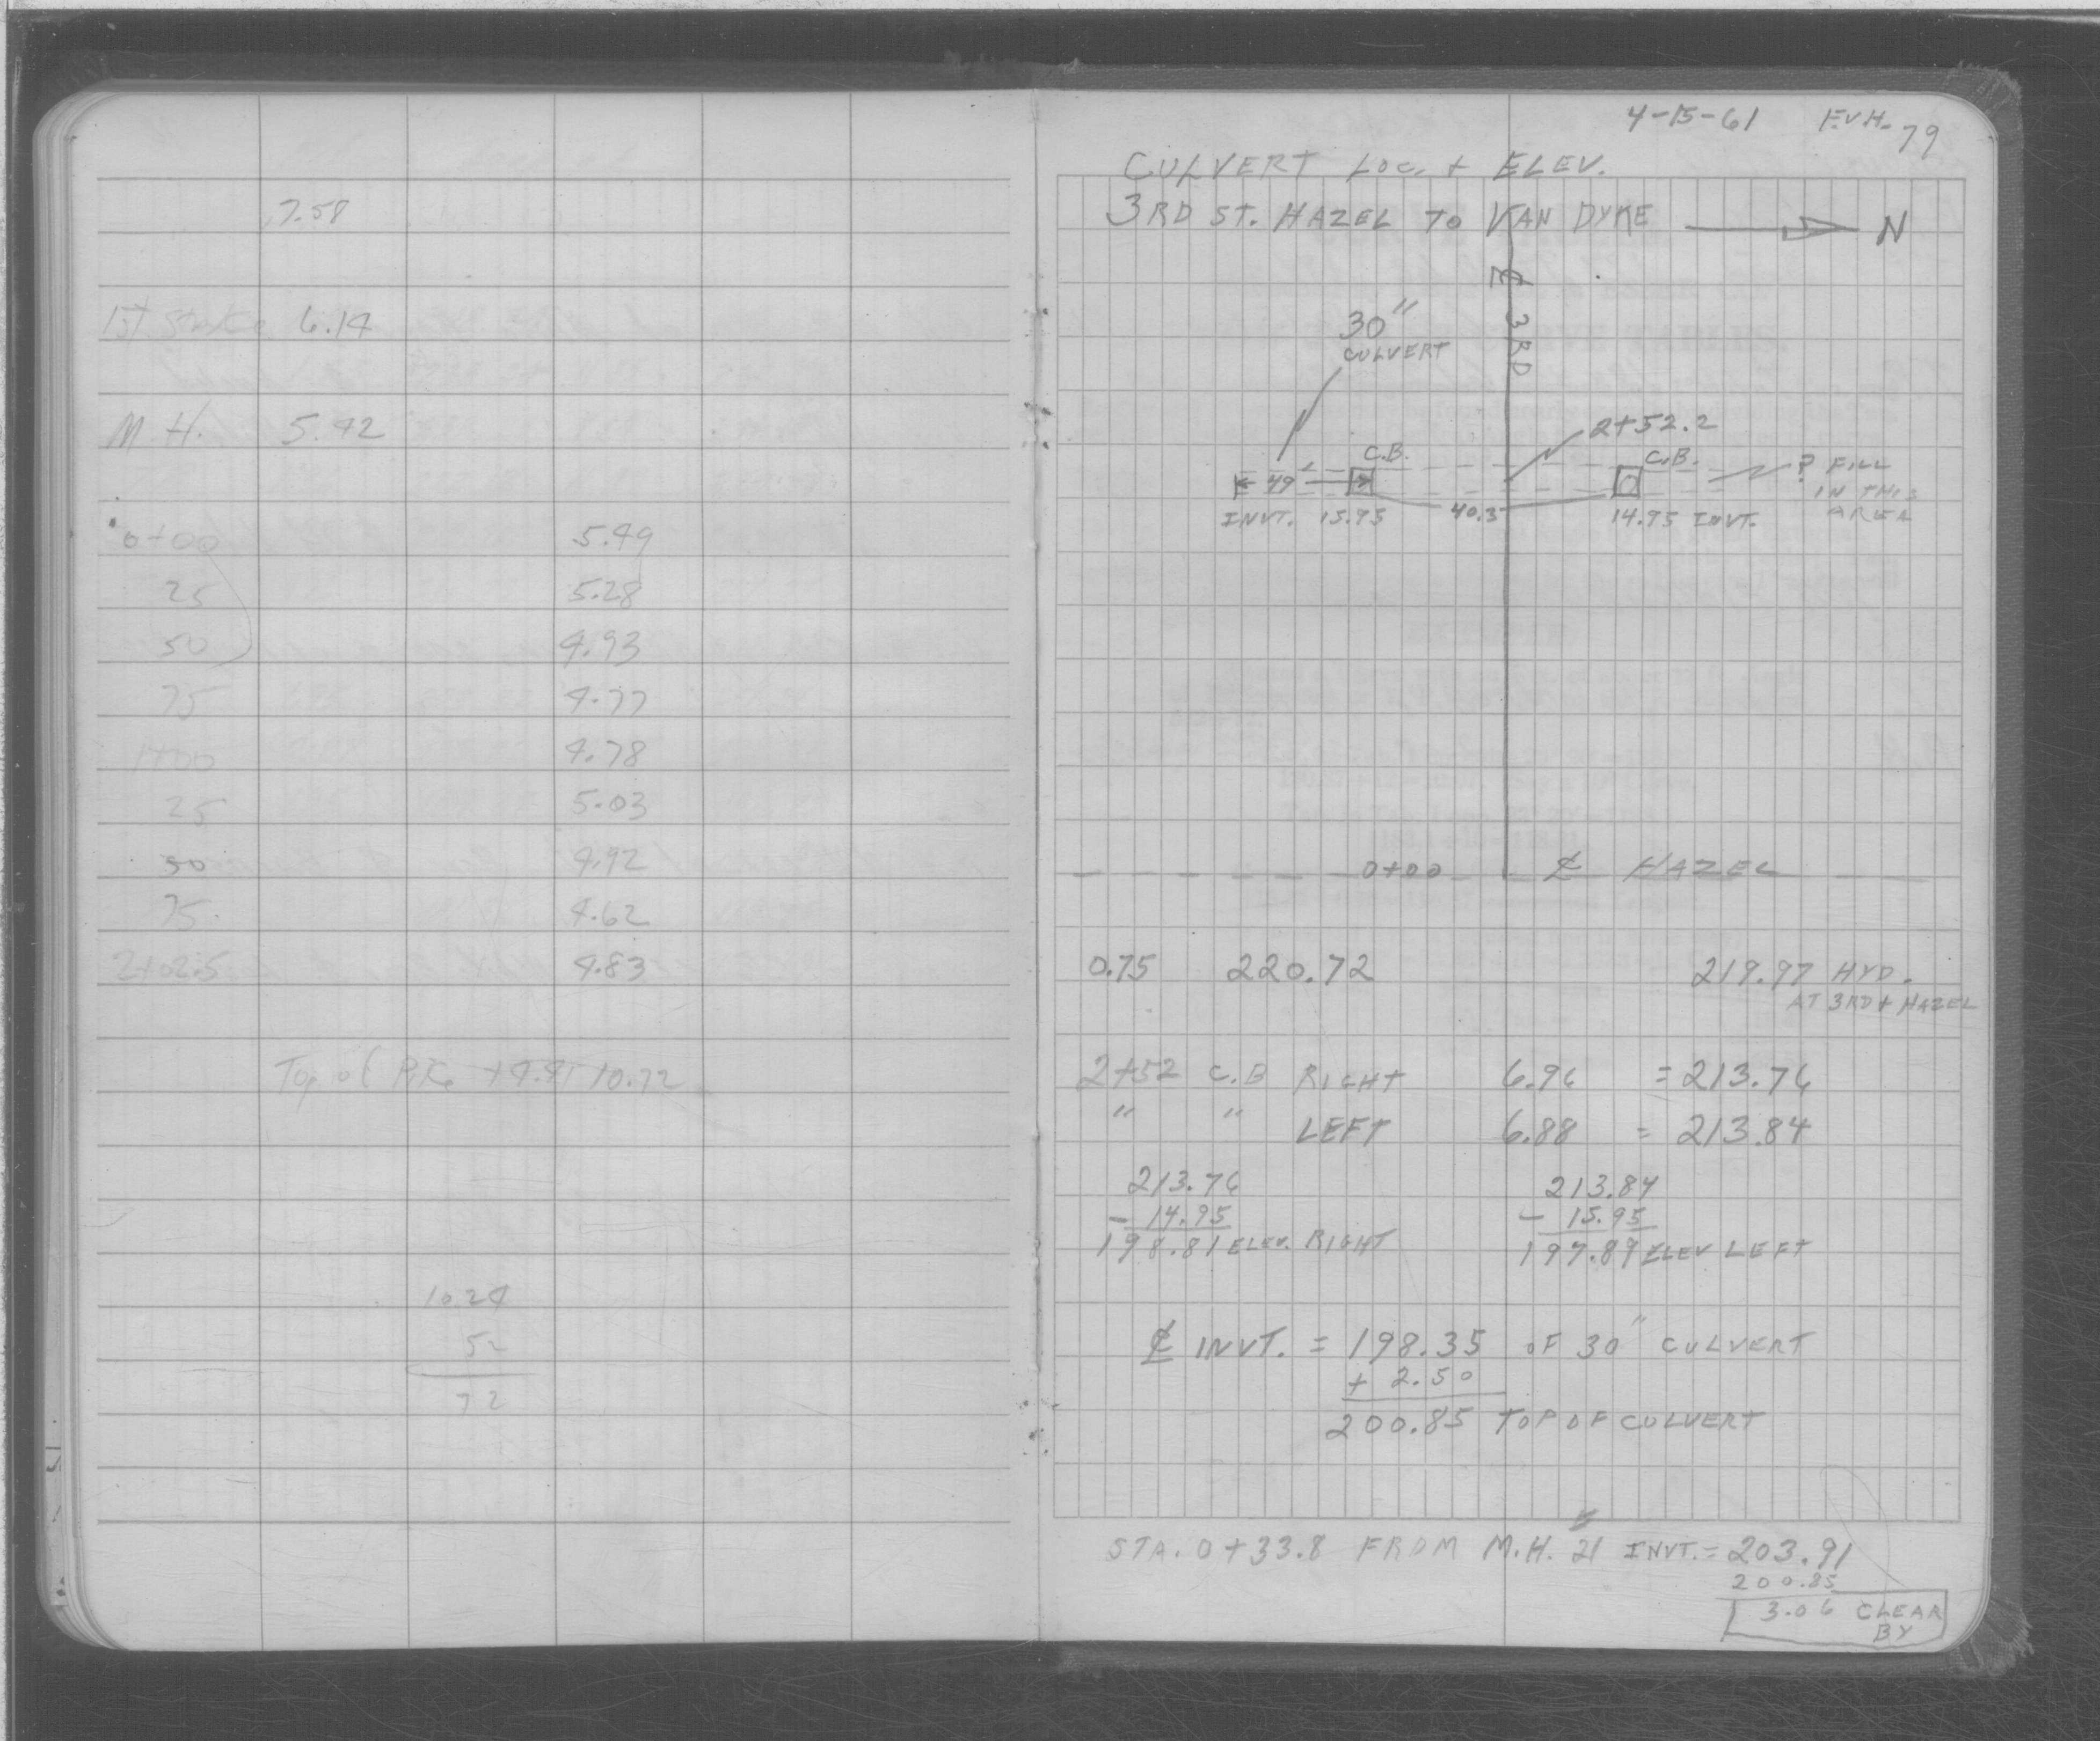 7.58
1st Stake 6.14
M.H. 5.42
0+00 5.49
25 5.28
50 4.93
75 4.77
1+00 4.78
25 5.03
50 4.92
75 4.62
2+02.5 4.83
Top of
10.72
10.24
52
72
4-15-61 F.V.H. 79
CULVERT LOC. + ELEV.
3RD ST. HAZEL TO VAN DYKE N
℄ 3RD
30"
CULVERT
2+52.2
C.B. C.B. ? FILL
49 IN THIS
INVT. 15.95 40.3 14.95 INVT. AREA
0+00 ℄ HAZEL
0.75 220.72 219.97 HYD.
AT 3RD + HAZEL
2+52 C.B RIGHT 6.96 = 213.76
" " LEFT 6.88 = 213.84
213.76 213.84
- 14.95 - 15.95
198.81 ELEV. RIGHT 197.89 ELEV LEFT
℄ INVT. = 198.35 OF 30" CULVERT
+ 2.50
200.85 TOP OF CULVERT
STA. 0+33.8 FROM M.H. 21 INVT. = 203.91
200.85
3.06 CLEAR
BY